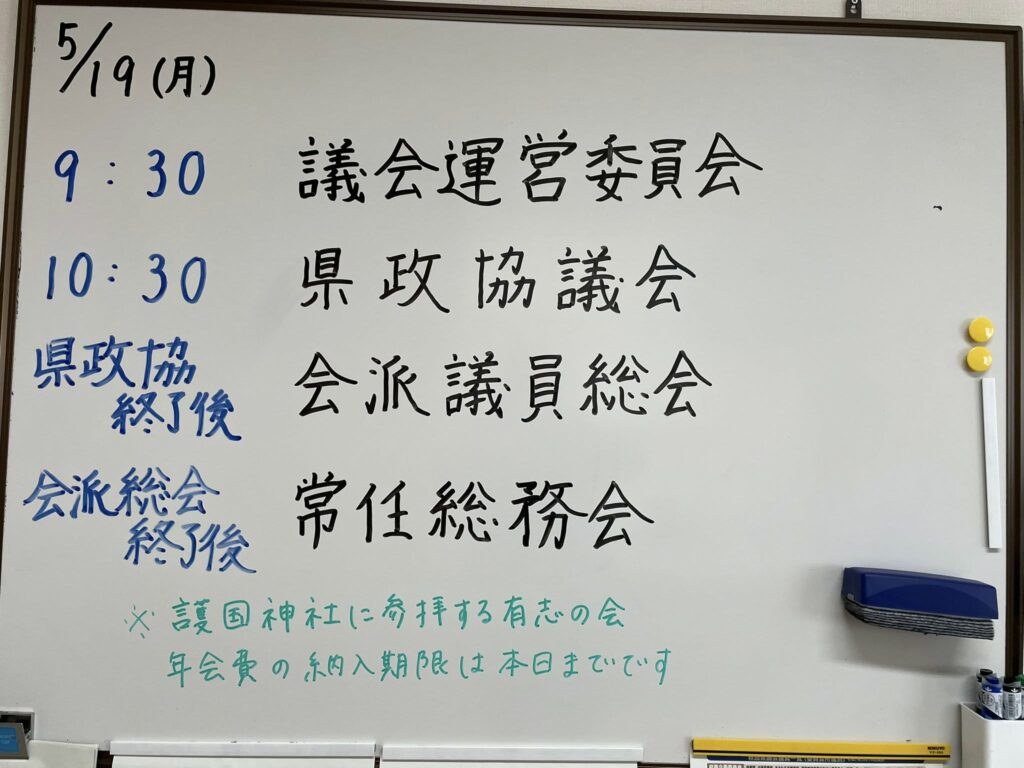 5/19(月)
9:30 議会運営委員会
10:30 県政協議会
県政協
終了後 会派議員総会
会派総会
終了後 常任総務会
※護国神社に参拝する有志の会
年会費の納入期限は本日までです
KOKUYO